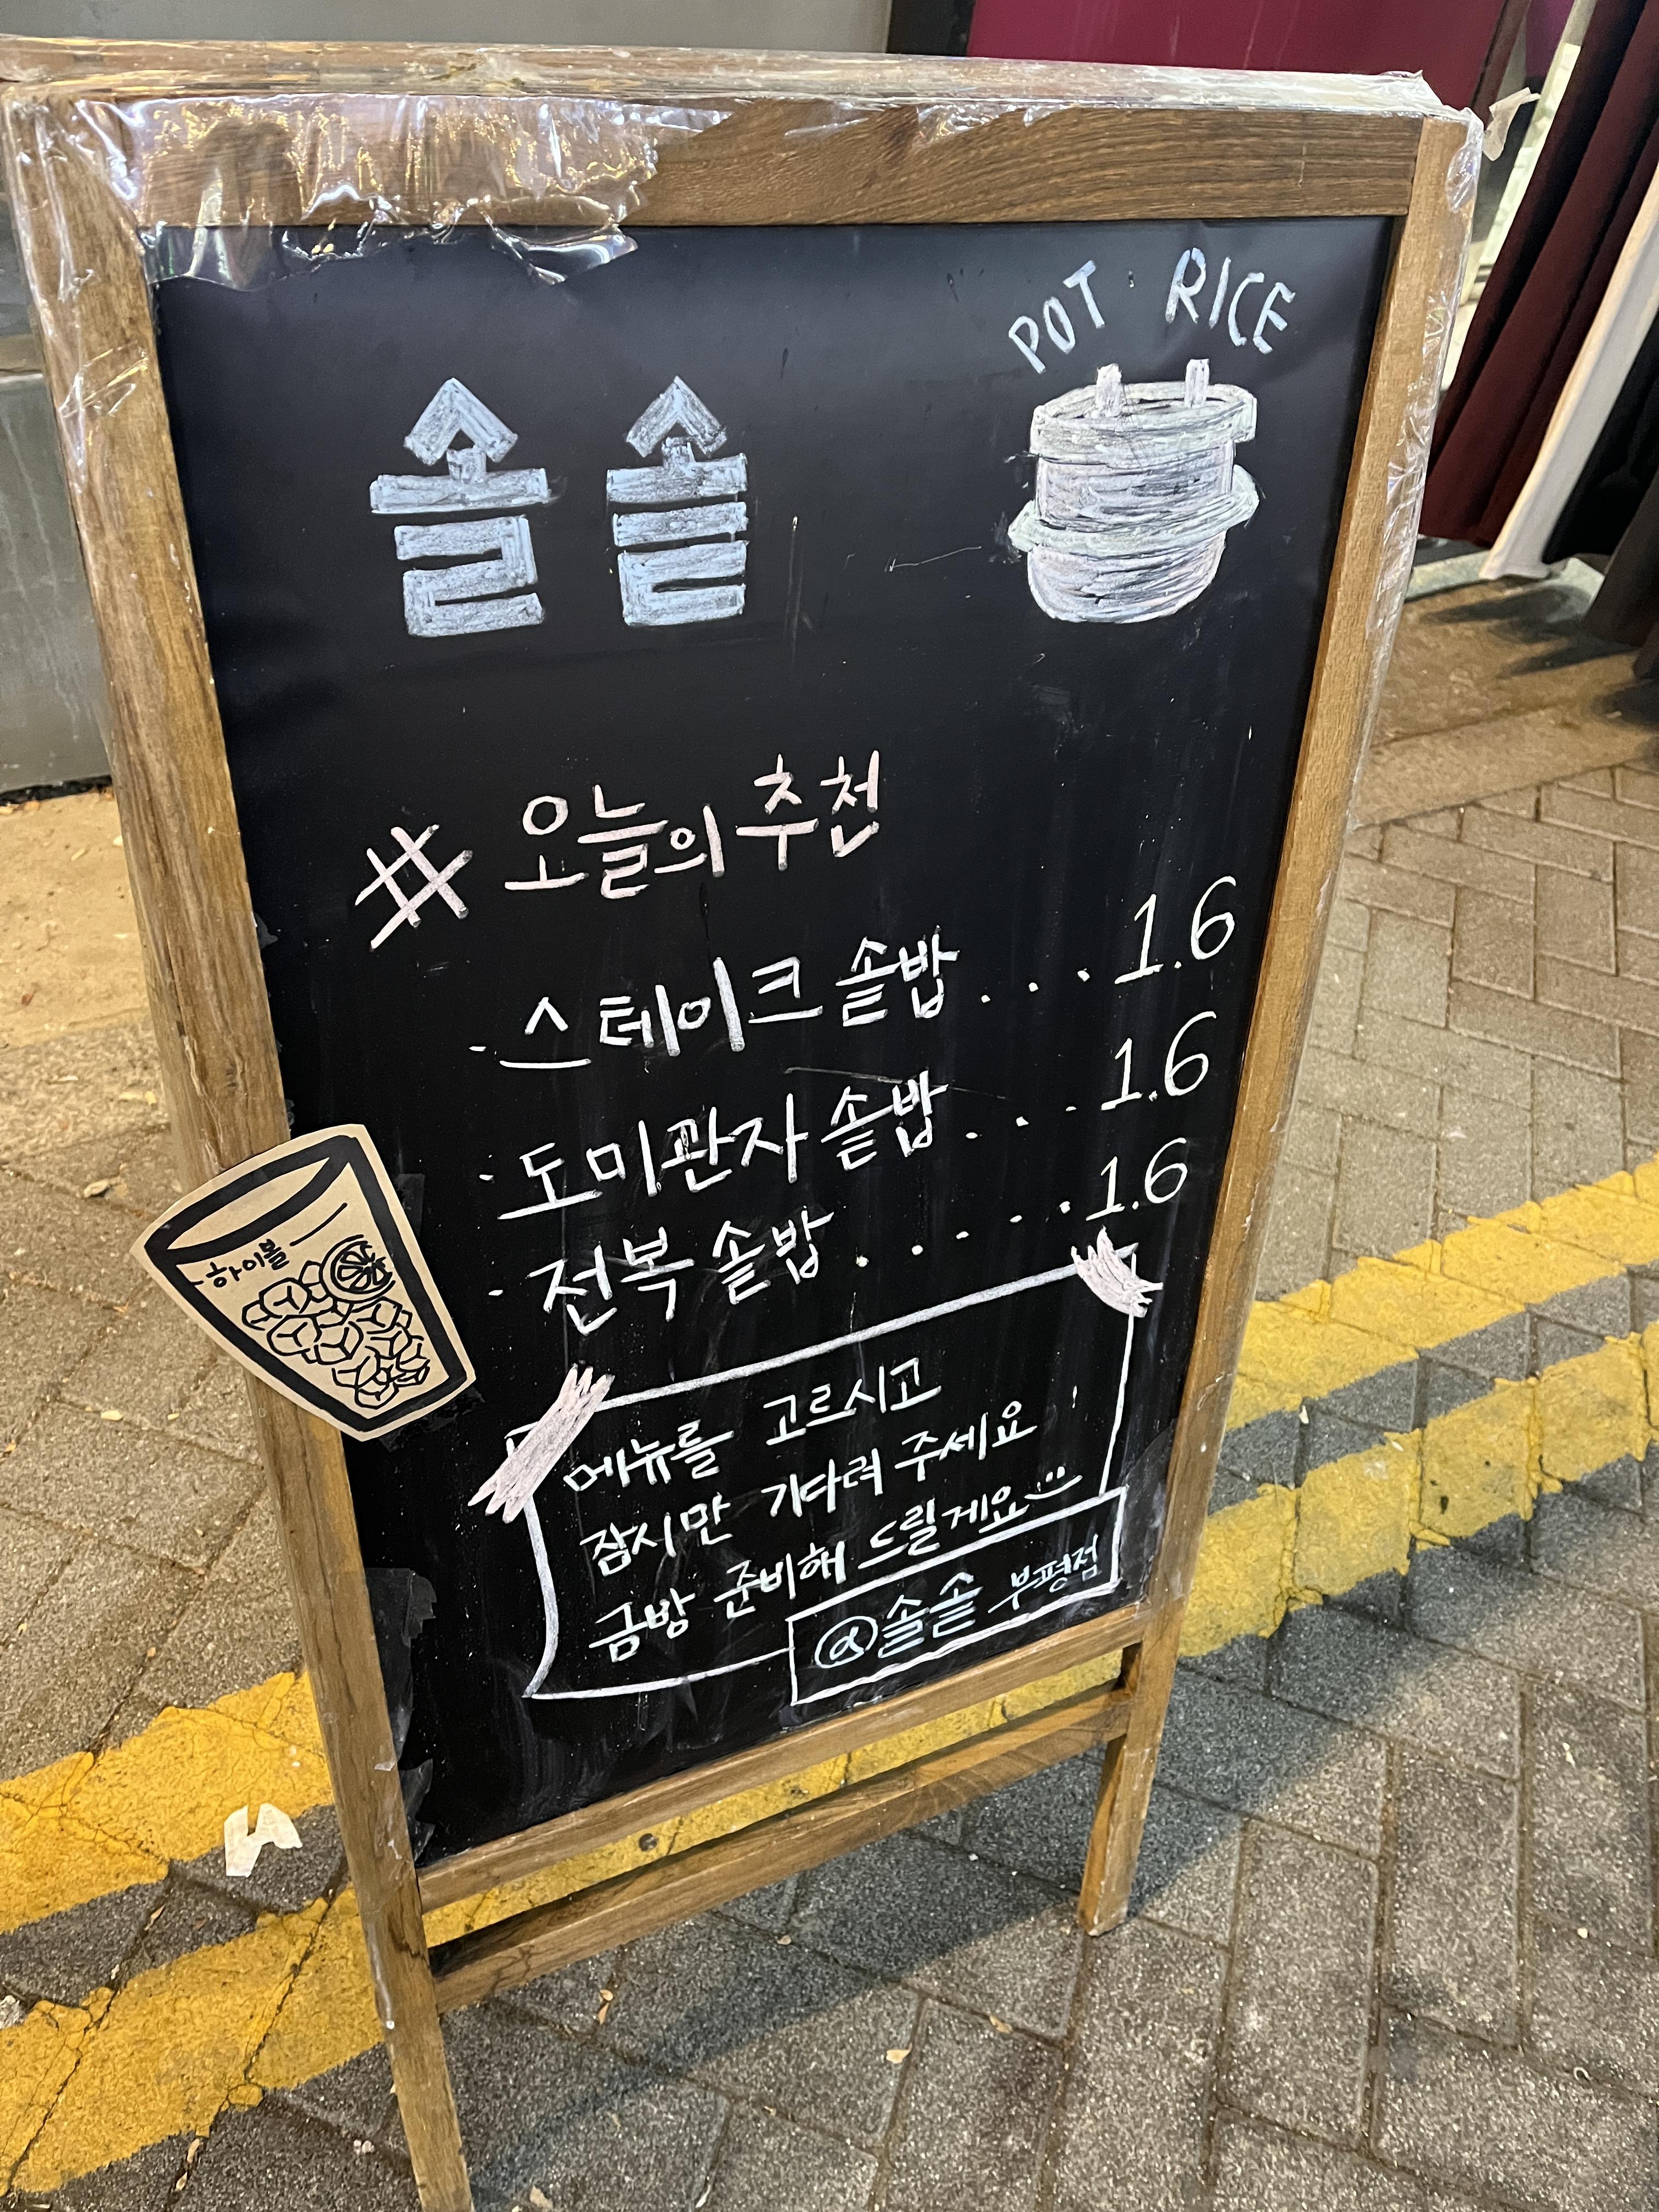 POT RICE
솔솥
# 오늘의 추천
· 스테이크 솥밥 . . . 1.6
· 도미관자 솥밥 . . . 1.6
· 전복 솥밥 . . . . . 1.6
하이볼
메뉴를 고르시고
잠시만 기다려 주세요
금방 준비해 드릴게요
@솔솥 부평점